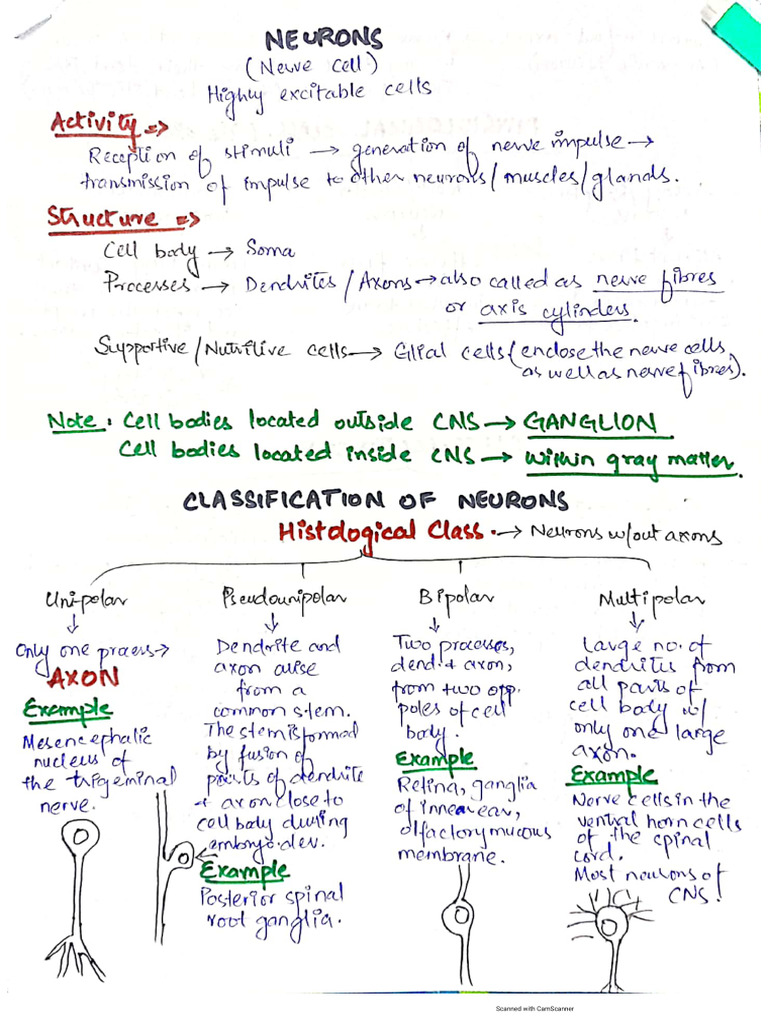 NEURONS
(Nerve cell)
Highly excitable cells
Activity =>
Reception of stimuli → generation of nerve impulse →
transmission of impulse to other neurons/muscles/glands.
Structure =>
Cell body → Soma
Processes → Dendrites / Axons → also called as nerve fibres
or axis cylinders.
Supportive/Nutritive cells → Glial cells (enclose the nerve cells
as well as nerve fibres).
Note: Cell bodies located outside CNS → GANGLION
Cell bodies located inside CNS → within gray matter.
CLASSIFICATION OF NEURONS
Histological Class. → Neurons w/out axons
Unipolar
↓
Only one process →
AXON
Example
Mesencephalic
nucleus of
the trigeminal
nerve.
Pseudounipolar
↓
Dendrite and
axon arise
from a
common stem.
The stem is formed
by fusion of
points of dendrite
+ axon close to
cell body during
embryo. dev.
Example
Posterior spinal
root ganglia.
Bipolar
↓
Two processes,
dend. + axon,
from two opp.
poles of cell
body.
Example
Retina, ganglia
of inner ear,
olfactory mucous
membrane.
Multipolar
↓
Large no. of
dendrites from
all parts of
cell body w/
only one large
axon.
Example
Nerve cells in the
ventral horn cells
of the spinal
cord.
Most neurons of
CNS!
Scanned with CamScanner